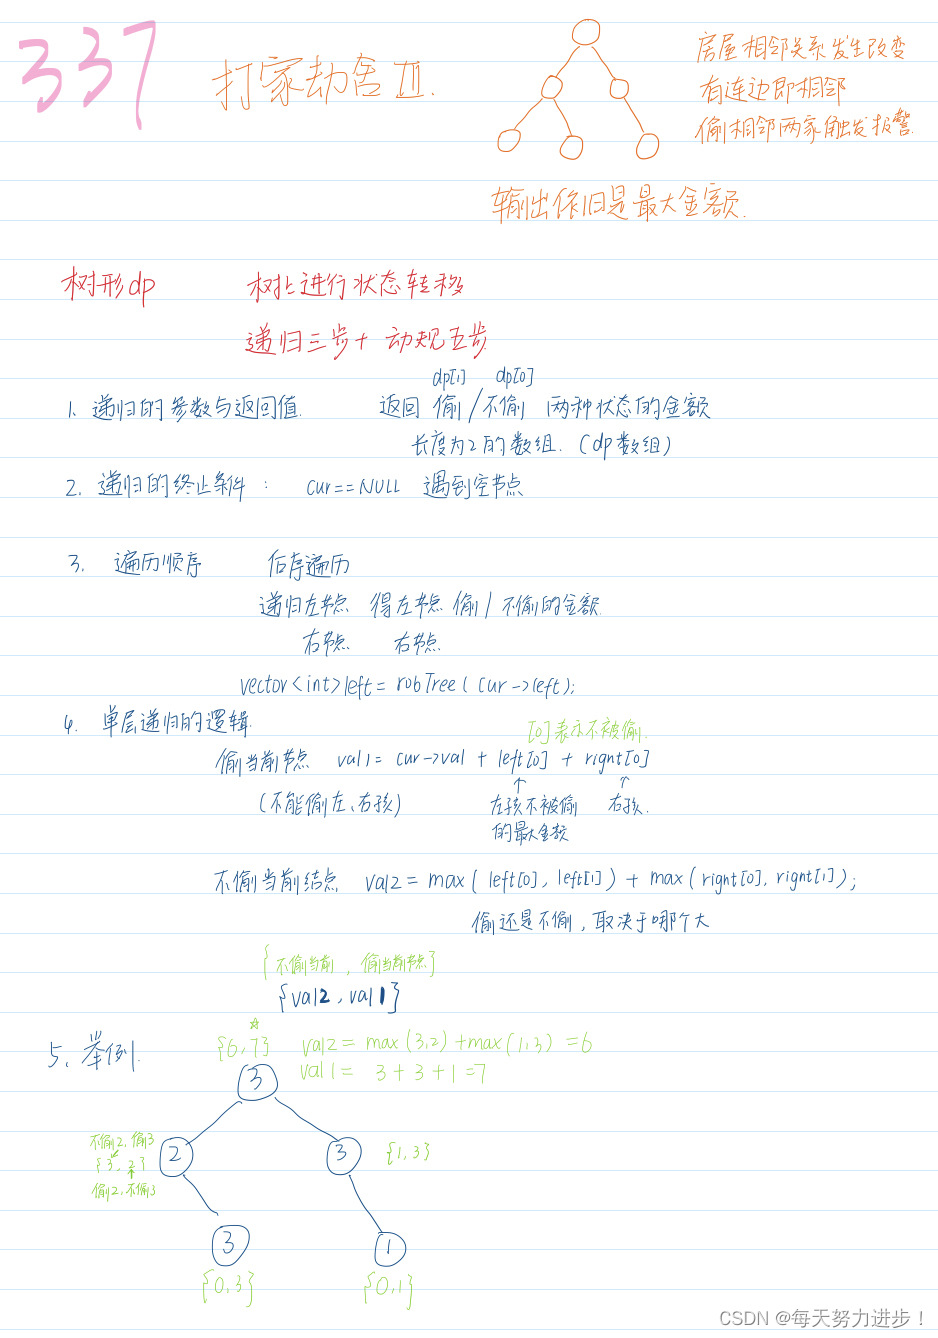 337
打家劫舍III.
房屋相邻关系发生改变
有连边即相邻
偷相邻两家触发报警.
输出作旧是最大金额.
树形dp 树上进行状态转移
递归三步+ 动规五步
dp[1] dp[0]
1、递归的参数与返回值. 返回 偷/不偷 两种状态的金额
长度为2的数组.(dp数组)
2. 递归的终止条件: cur==NULL 遇到空节点
3. 遍历顺序 后序遍历
递归左节点 得左节点 偷/不偷的金额.
右节点 右节点.
vector<int>left = robTree(cur->left);
4. 单层递归的逻辑.
[0]表示不被偷.
偷当前节点 val1 = cur->val + left[0] + right[0]
(不能偷左、右孩) ↑ ↑
左孩不被偷 右孩.
的最大金额
不偷当前结点 val2 = max(left[0], left[1]) + max(right[0], right[1]);
偷还是不偷,取决于哪个大
{不偷当前, 偷当前节点}
{val2, val1}
5、举例.
☆
{6,7} val2 = max(3,2)+max(1,3) =6
val1 = 3+3+1=7
3
不偷2,偷3
{3, 2}
偷2,不偷3
2
3
{1,3}
3
1
{0,3}
{0,1}
CSDN @每天努力进步!